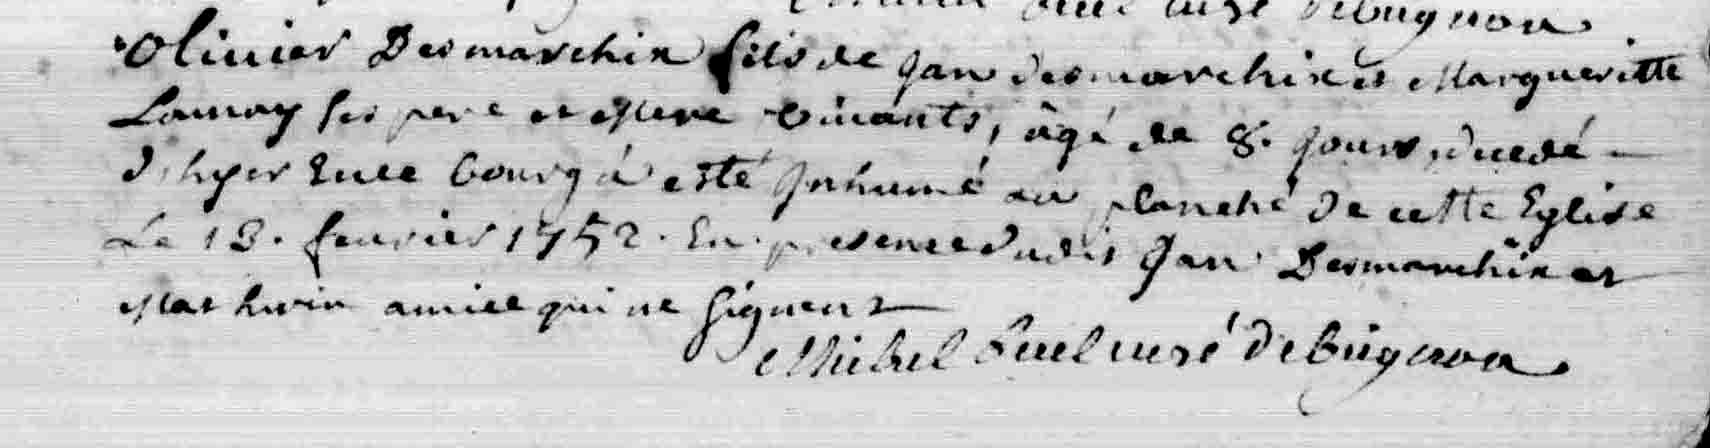 curé de bugnon
Olivier Desmarchix fils de Jan desmarchix et Margueritte
Launay ses pere et Mere vivants, âgé de 8. Jours, decedé
d'hyer En ce bourg á esté Jnhumé au planché de cette Eglise
Le 13. fevrier 1752. En presence dudit Jan Desmarchix et
Mathurin amice qui ne signent
Michel curé de bugnon